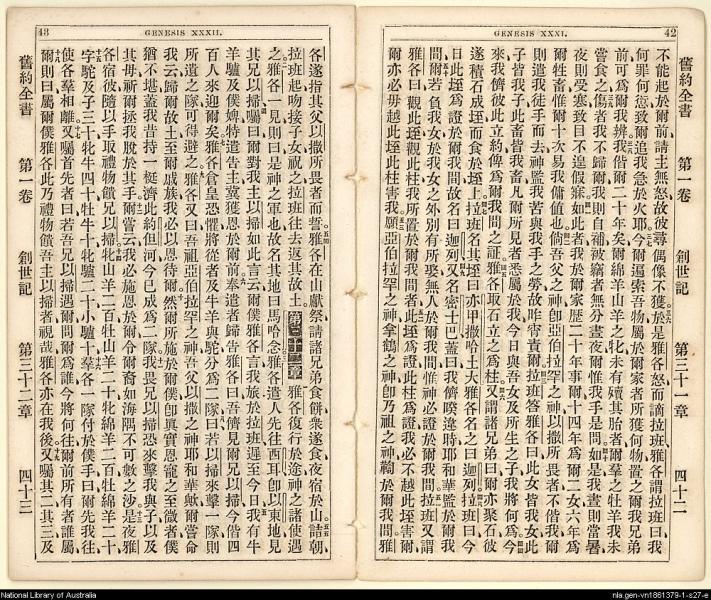 GENESIS XXXI. 42
舊約全書 第一卷 創世記 第三十一章 四十二
不能起於爾前請主無怒故彼尋偶像不獲於是雅各怒而謫拉班雅各謂拉班曰我
何罪何愆致爾追我急於火耶今爾遍索吾物屬於爾家者所獲何物置之爾我兄弟
前可爲爾我辨我偕爾二十年矣爾綿羊山羊之牝未有殰其胎者爾羣之牡羊我未
嘗食之傷者我不歸爾我則自補被竊者無分晝夜爾惟我手是問如是我晝則當暑
夜則受寒致目不遑假寐如此者我於爾家歷二十年事爾十四年爲爾二女六年爲
爾牲畜惟爾十次易我傭値也倘吾父之神卽亞伯拉罕之神以撒所畏者不偕我爾
則遣我徒手而去神鑑我苦與我手之勞故昨宵責爾拉班答雅各曰此女皆我女此
子皆我子此畜皆我畜凡爾所見者悉屬於我今日與吾女及所生之子我將何爲今
來我儕彼此立約俾爲爾我間之證雅各取石立之爲柱又謂諸兄弟曰爾亦聚石彼
遂積石成垤而食於垤上拉班名其垤曰亦甲撒哈土大雅各名之曰迦列拉班曰今
日此垤爲證於爾我間故名曰迦列又名密士巴蓋曰我儕暌違時耶和華鑑於爾我
間爾若負我女於我女之外別有所娶無人於爾我間惟神必證於爾我間拉班又謂
雅各曰觀此垤觀此柱我所置於爾我間者此垤爲證此柱爲證我必不越此垤害爾
爾亦必毋越此垤此柱害我願亞伯拉罕之神拿鶴之神卽乃祖之神鞫於爾我間雅
43 GENESIS XXXII.
各遂指其父以撒所畏者而誓雅各在山獻祭請諸兄弟食餅衆遂食夜宿於山詰朝
拉班起吻接子女祝之拉班往去返其故土第三十二章雅各復行於途神之諸使遇
之雅各一見則曰是神之軍也故名其地曰馬哈念雅各遣人先往西耳卽以東地見
其兄以掃囑曰爾對我主以掃如此言云爾僕雅各言我旅於拉班遲至今日我有牛
羊驢及僕婢特遣告主冀獲恩於爾前奉遣者歸告雅各曰吾儕見爾兄以掃今偕四
百人來迎爾矣雅各倉皇恐懼將從者及牛羊與駝分爲二隊曰若以掃來擊一隊則
所遺之隊可得避之雅各又曰吾祖亞伯拉罕之神吾父以撒之神耶和華歟爾嘗命
我云歸爾故土至爾戚族我必以恩待爾然爾所施於爾僕卽眞實恩寵之至微者僕
猶不堪蓋我昔持一梃濟此約但河今已成爲二隊我畏兄以掃恐來擊我與子以及
其母祈爾拯我脫於其手爾嘗云我必施恩於爾令爾裔如海隅不可數之沙是夜雅
各宿彼隨以手取禮物餽兄以掃牝山羊二百牡山羊二十牝綿羊二百牡綿羊二十
字駝及子三十牝牛四十牡牛十牝驢二十小驢十羣各一隊付於僕手曰爾先我往
使各羣相離又囑首先者曰若吾兄以掃遇爾問爾爲誰今將何往爾前所有者誰屬
爾則曰屬爾僕雅各此乃禮物餽吾主以掃者視哉雅各亦在我後又囑其二其三及
舊約全書 第一卷 創世記 第三十二章 四十三
National Library of Australia
nla.gen-vn1861379-1-s27-e